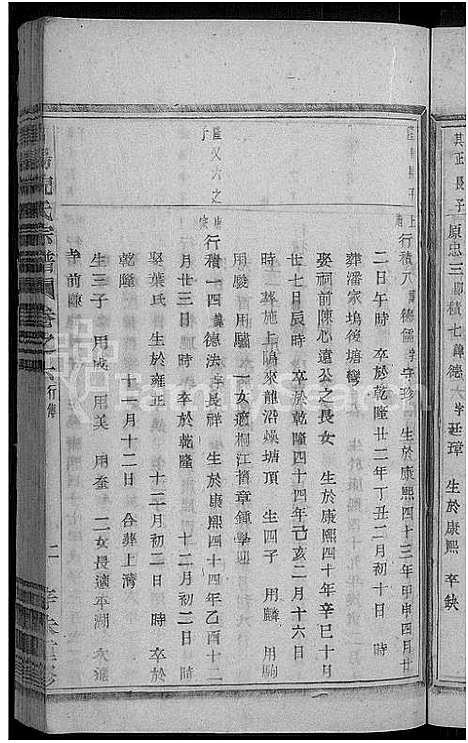 其正長子
原忠三
積七諱德
字廷璋
生於康熙
卒缺
行積八
諱德儒
字字珍
生於康熙四十三年甲申四月廿
二日午時
卒於乾隆廿二年丁丑二月初十日時
葬潘家塢後塘灣
娶祠前陳心遠公之長女
生於康熙四十年辛巳十月
廿七日辰時
卒於乾隆四十四年己亥二月十六日
時
葬施上隖來龍沿燥塘頂
生四子
用麟
用駒
用駿
用驌
一女適桐江
章鍾
隆又六之
子
行積一四
諱德法
字長祥
生於康熙四十四年乙酉十二
月廿三日時
卒於乾隆
十二月初二日時
娶葉氏
生於雍正
十二月初二日
時
卒於
乾隆
十一月十二日
合葬上灣
生三子
用成
用美
用奎
二女長適平湖
次適
寺前陳
氏宗譜
卷之六
行傳
二